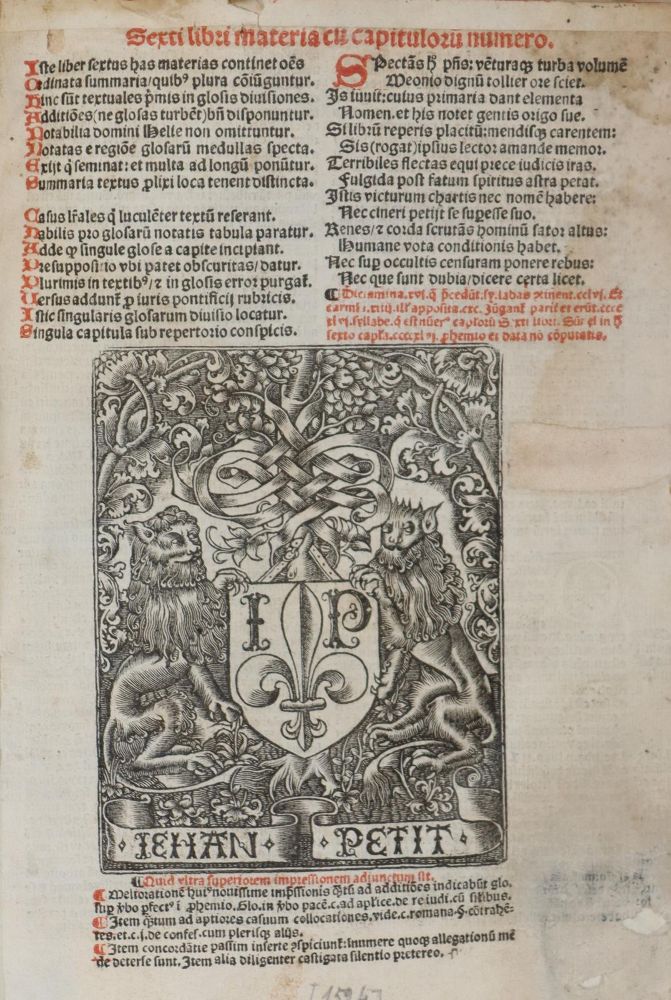 Sexti libri materia cū capitulorū numero.
Iste liber sextus has materias continet oēs
Ordinata summaria/quibꝰ plura cōiūguntur.
Hinc sūt textuales pͥmis in glosis diuisiones.
Additiões(ne glosas turbēt)bn̄ disponuntur.
Notabilia domini Helie non omittuntur.
Notatas e regiōe glosarū medullas specta.
Exijt q̄ seminat: et multa ad longū ponūtur.
Summaria textus ꝓlixi loca tenent distincta.
Casus lr̄ales q̄ luculēter textū reserant.
Habilis pro glosarū notatis tabula paratur.
Adde ꝙ singule glose a capite incipiant.
Presuppositio vbi patet obscuritas/datur.
Plurimis in textibꝰ/⁊ in glosis error purgat̄.
Versus addunt̄ ꝓ iuris pontificij rubricis.
Istic singularis glosarum diuisio locatur.
Singula capitula sub repertorio conspicis.
Spectās h̄ pn̄s: vēturaqꝫ turba volumē
Meonio dignū tollier ore sciet.
Is iuuit: cuius primaria dant elementa
Nomen. et his notet gentis origo sue.
Si librū reperis placitū: mendisqꝫ carentem:
Sis(rogat)ipsius lector amande memor.
Terribiles flectas equi prece iudicis iras.
Fulgida post fatum spiritus astra petat.
Istis victurum chartis nec nomē habere:
Nec cineri petijt se supesse suo.
Renes/⁊ corda scrutās hominū sator altus:
Humane vota conditionis habet.
Nec suꝑ occultis censuram ponere rebus:
Nec que sunt dubia/dicere certa licet.
sexto
ꝓhemio et data nō cōputatis.
I P
IEHAN PETIT
¶ Quid vltra superiorem impressionem adjunctum sit.
¶ Meliorationē huiꝰ nouissime imp̄ssionis q̄tū ad additiões indicabūt glo.
suꝑ ꝟbo ꝑfectꝰ ī ꝓhemio. Glo. in ꝟbo pacē. c. ad apl̄ice. de re iudi. cū sil̄ibus.
¶ Item q̄tum ad aptiores casuum collocationes. vide. c. romana. §. cōtrahē-
tes. et. c. j. de confes. cum plerisqꝫ alijs.
¶ Item concordātie passim inserte ꝯspiciunt̄: innumere quoqꝫ allegationū mē
de deterse sunt. Item alia diligenter castigata silentio pretereo.